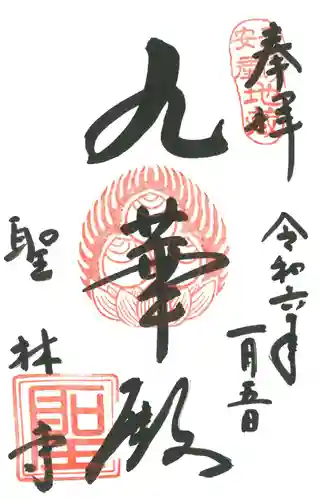 奉拝
安産地蔵
令和六年
一月五日
九華殿
聖林寺
聖